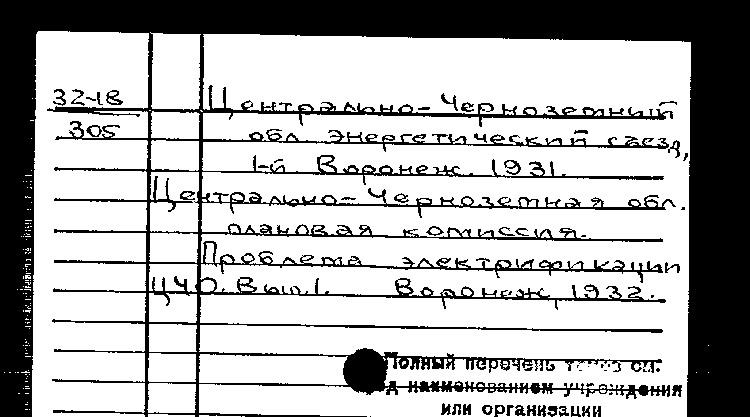 32-18
305
Центрально-Черноземный
обл энергетический съезд,
1-й Воронеж. 1931.
Центрально-Черноземная обл.
плановая комиссия.
Проблема электрификации
ЦЧО. Вып.1. Воронеж, 1932.
Полный перечень томов см.
наименованием учреждения
или организации